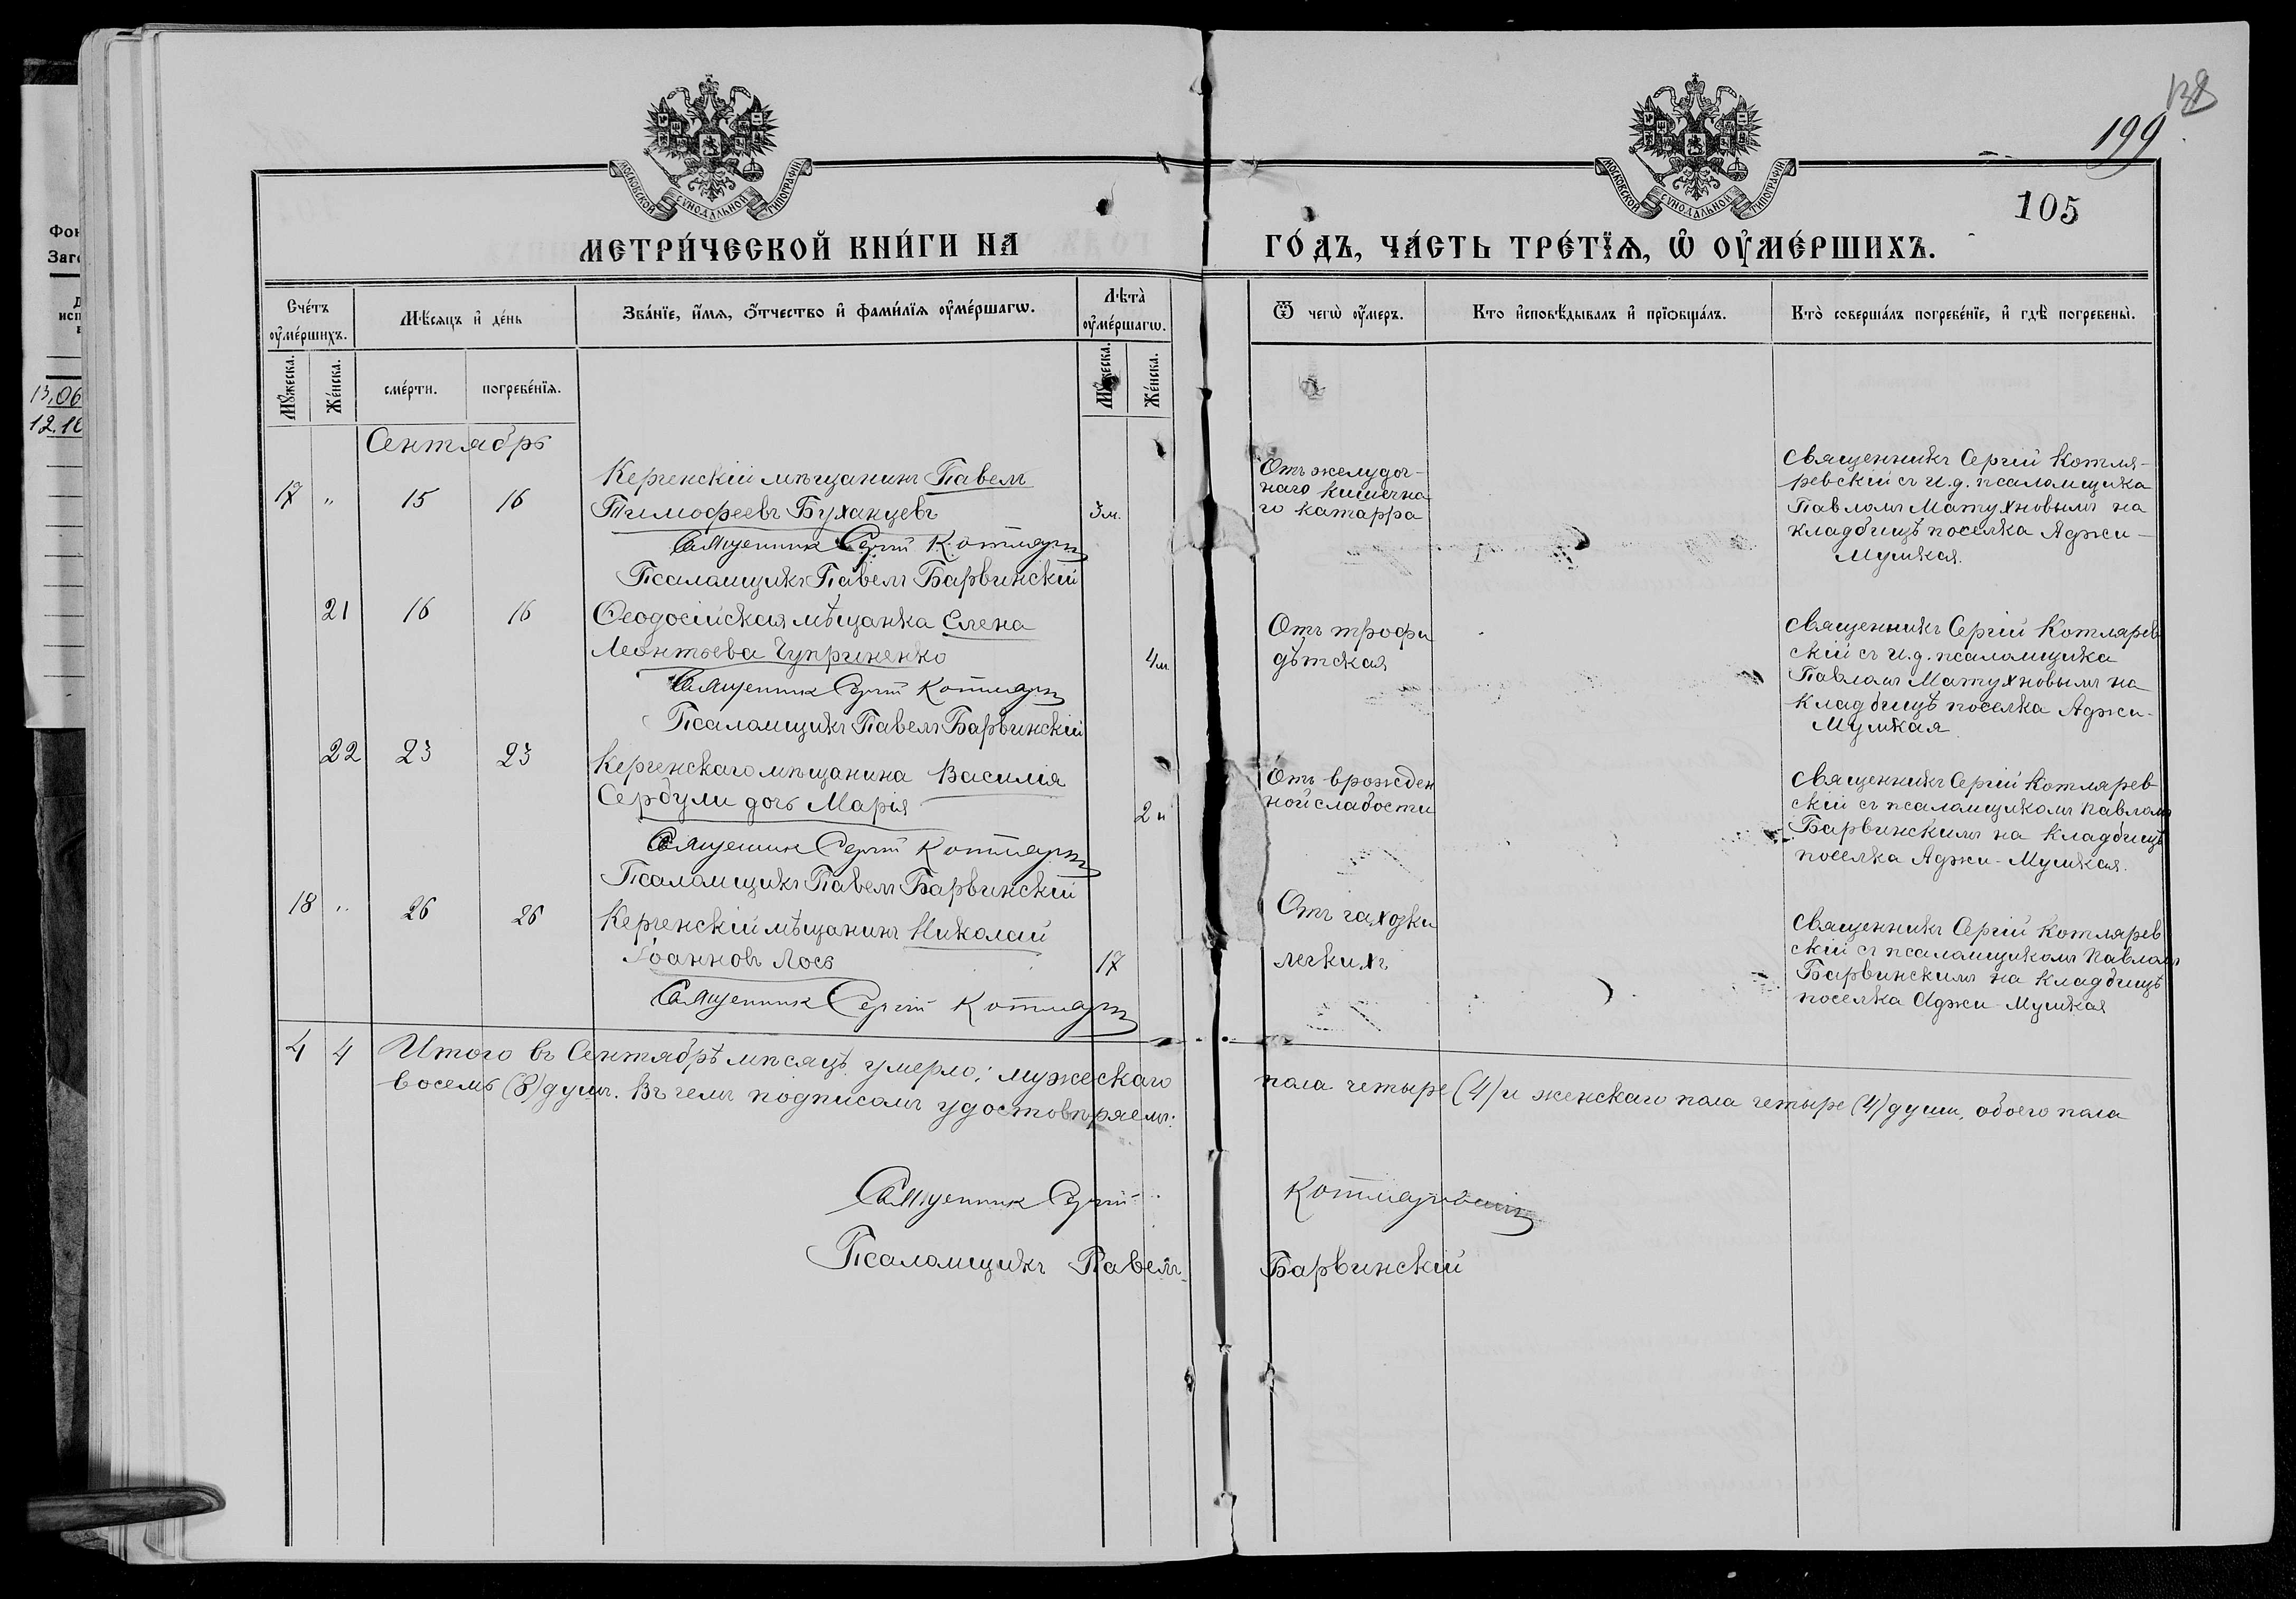 138
199
105
МОСКОВСКОЙ СѴНОДАЛЬНОЙ ТИПОГРАФІИ
МОСКОВСКОЙ СѴНОДАЛЬНОЙ ТИПОГРАФІИ
МЕТРИ́ЧЕСКОЙ КНИ́ГИ НА ГО́ДЪ, ЧА́СТЬ ТРЕ́ТЇѦ, Ѡ҆ ОУ҆МЕ́РШИХЪ.
Фон
Заго
13.06
12.10
Сче́тъ оу҆ме́ршихъ.
Мꙋ́жеска.
Же́нска.
Мѣ́сѧцъ и҆ де́нь
сме́рти.
погребе́нїѧ.
Зва́нїе, и҆́мѧ, ѻ҆́тчество и҆ фами́лїѧ оу҆ме́ршагѡ.
Лѣта̀ оу҆ме́ршагѡ.
Мꙋ́жеска.
Же́нска.
Ѿ чегѡ̀ оу҆́меръ.
Кто̀ и҆сповѣ́дывалъ и҆ прїѡбща́лъ.
Кто̀ соверша́лъ погребе́нїе, и҆ гдѣ̀ погребены̀.
Сентябрь
17 " 15 16
Керченскій мѣщанинъ Павелъ
Тимофеевъ Буханцевъ
3 м.
Священник Сергій Котляр
Псаломщикъ Павелъ Барвинскій
Отъ желудоч-
наго кишечна
го катарра
священникъ Сергій Котля-
ревскій съ и.д. псаломщика
Павломъ Матухновымъ на
кладбищѣ поселка Аджи-
Мушкая.
21 16 16
Ѳеодосійская мѣщанка Елена
Леонтьева Чуприненко
4 м
Священник Сергій Котляр
Псаломщикъ Павелъ Барвинскій
Отъ трофи
дѣтская
священникъ Сергій Котлярев
скій съ и.д. псаломщика
Павломъ Матухновымъ на
кладбищѣ поселка Аджи-
Мушкая
22 23 23
Керченскаго мѣщанина Василія
Сербули дочь Марія
2 н
Священник Сергій Котляр
Псаломщикъ Павелъ Барвинскій
Отъ врожден
ной слабости
священникъ Сергій Котлярев
скій съ псаломщикомъ Павломъ
Барвинскимъ на кладбищѣ
поселка Аджи-Мушкая.
18 " 26 26
Керченскій мѣщанинъ Николай
Іоанновъ Лось
17
Священник Сергій Котляр
Отъ чахотки
легкихъ
священникъ Сергій Котлярев
скій съ псаломщикомъ Павломъ
Барвинскимъ на кладбищѣ
поселка Аджи-Мушкая
4 4 Итого въ Сентябрѣ мѣсяцѣ умерло: мужескаго пола четыре (4) и женскаго пола четыре (4) души, обоего пола
восемь (8) душъ. Въ чемъ подписомъ удостовѣряемъ:
Священник Сергій Котляревскій
Псаломщикъ Павелъ Барвинскій